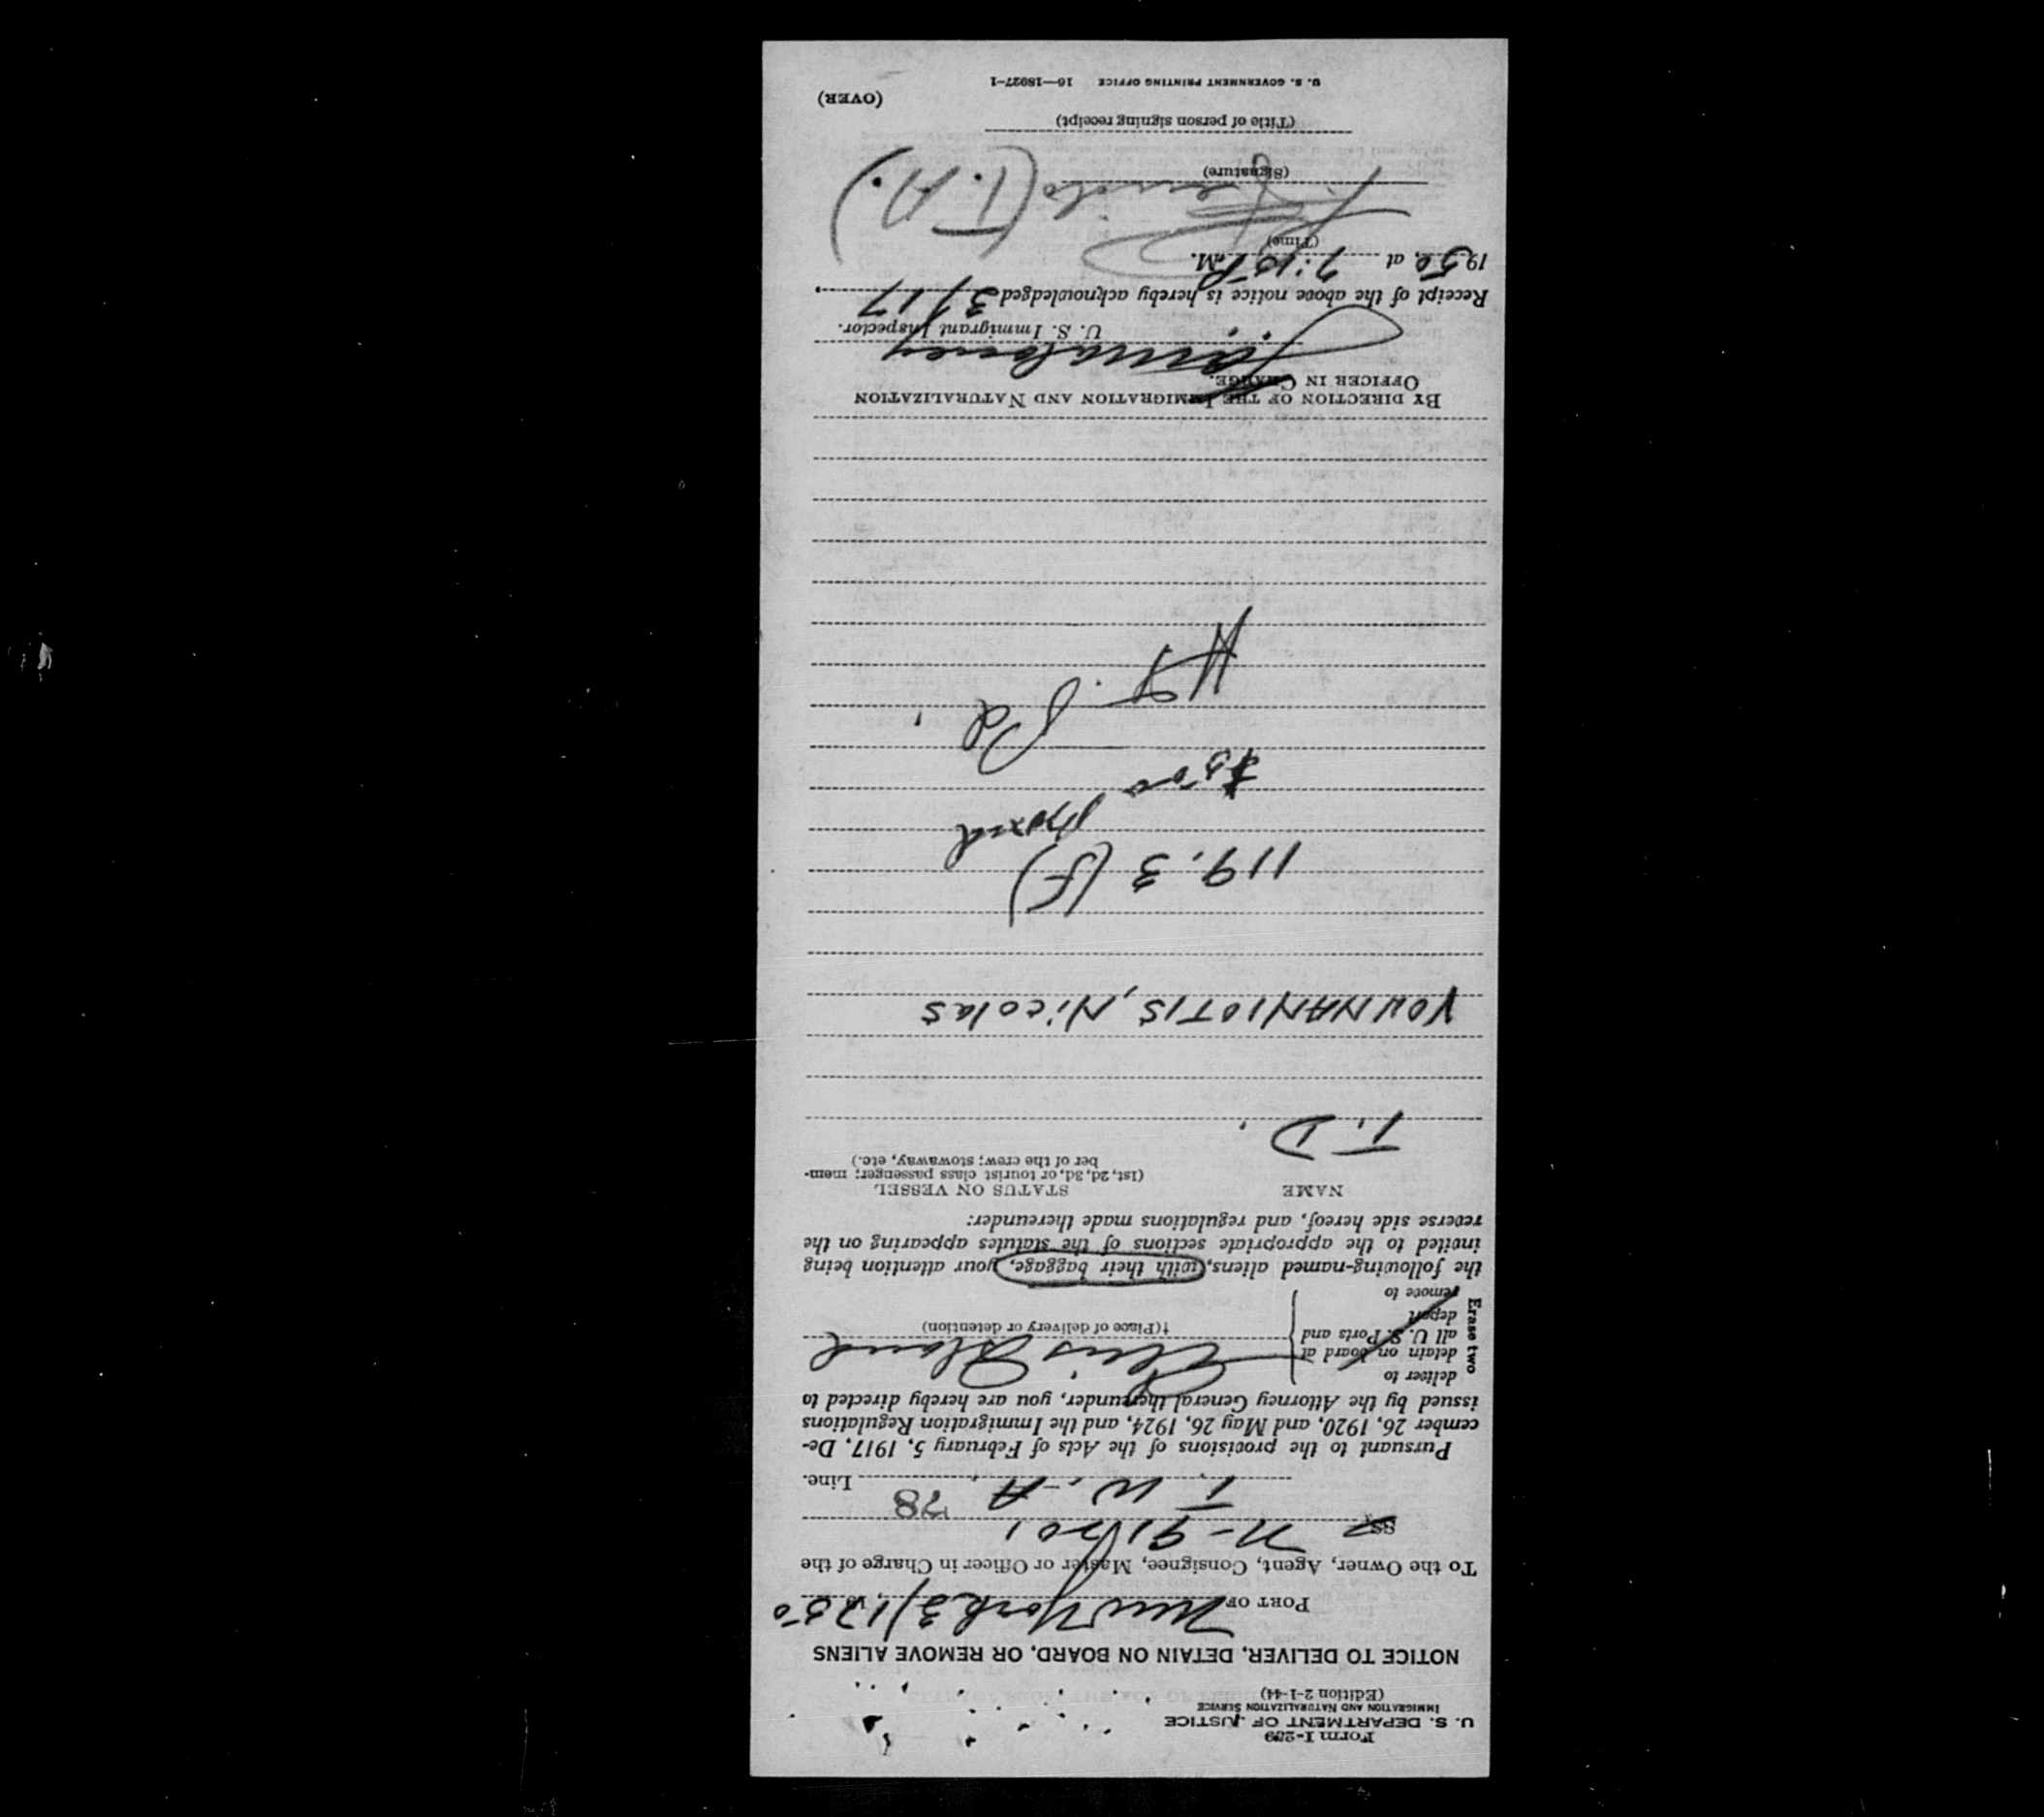 Form I-259
U. S. DEPARTMENT OF JUSTICE
IMMIGRATION AND NATURALIZATION SERVICE
(Edition 2-1-44)
NOTICE TO DELIVER, DETAIN ON BOARD, OR REMOVE ALIENS
PORT OF New York 3/17, 1950
To the Owner, Agent, Consignee, Master or Officer in Charge of the
SS N-91201
T. W. A. 78 Line.
Pursuant to the provisions of the Acts of February 5, 1917, De-
cember 26, 1920, and May 26, 1924, and the Immigration Regulations
issued by the Attorney General thereunder, you are hereby directed to
Erase two
deliver to
detain on board at
all U. S. Ports and
deport
remove to
Ellis Island
†(Place of delivery or detention)
the following-named aliens, with their baggage, your attention being
invited to the appropriate sections of the statutes appearing on the
reverse side hereof, and regulations made thereunder:
NAME STATUS ON VESSEL
(1st, 2d, 3d, or tourist class passenger; mem-
ber of the crew; stowaway, etc.)
T. D.
VOUNANIOTIS, Nicolas
119.3 (F)
$500
Pd.
BY DIRECTION OF THE IMMIGRATION AND NATURALIZATION
OFFICER IN CHARGE.
U. S. Immigrant Inspector.
Receipt of the above notice is hereby acknowledged 3/17
1950, at 7:10 P.M.
(Time)
(T.A.)
(Signature)
(Title of person signing receipt)
(OVER)
U. S. GOVERNMENT PRINTING OFFICE 16—18027-1